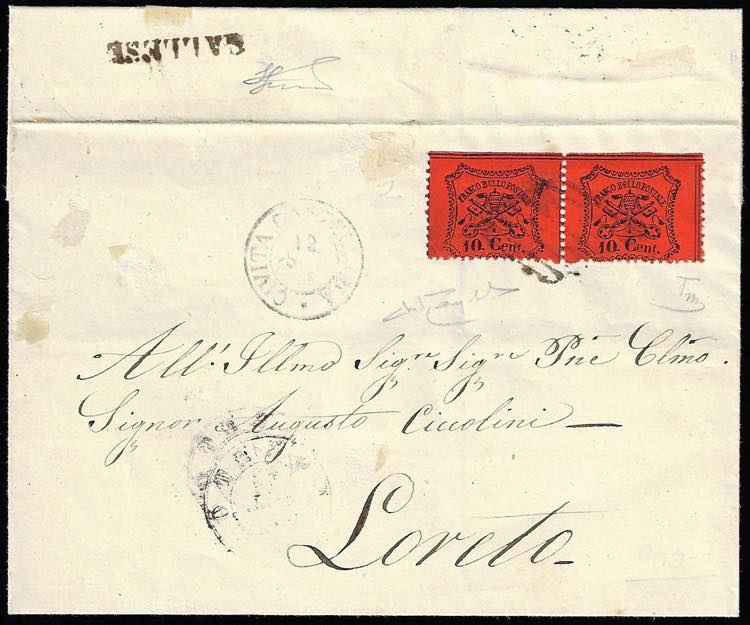 GALLESE
FRANCO BOLLO POSTALE
10 Cent.
FRANCO BOLLO POSTALE
10 Cent.
CIVITA
12
All'. Illmo Sigre Sigre Pne Clmo.
Signor Augusto Ciccolini —
Loreto